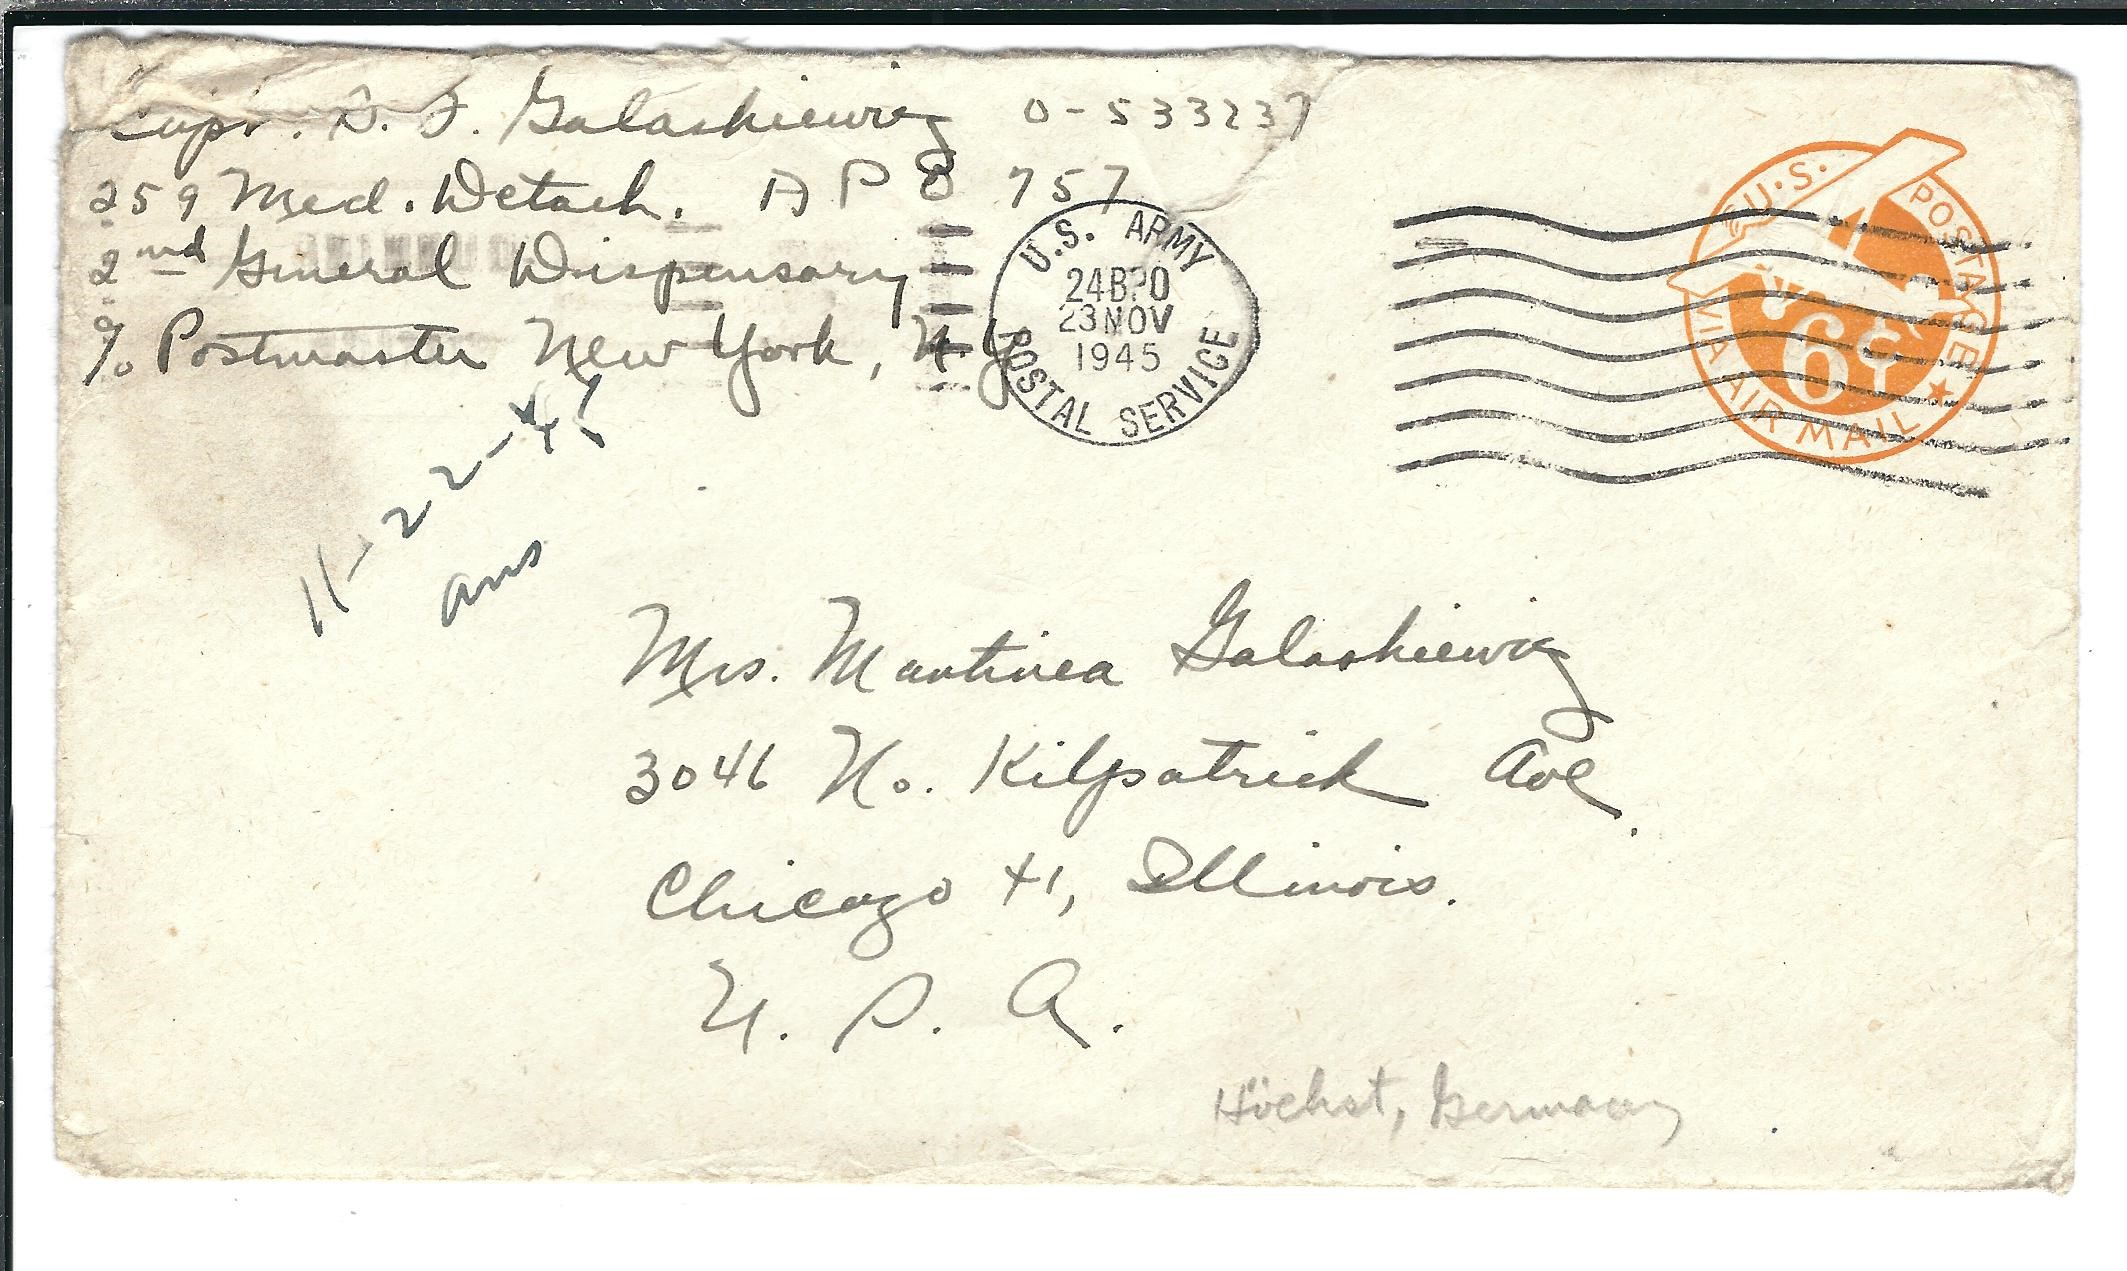 Capt. D. F. Galaskiewicz 0-533237
259 Med. Detach. APO 757
2nd General Dispensary
c/o Postmaster New York, N.Y.
U.S. ARMY
24BPO
23 NOV
1945
POSTAL SERVICE
U.S. POSTAGE
6¢
VIA AIR MAIL
11-22-45
ans
Mrs. Galaskiewicz
3046 No. Kilpatrick Ave.
Chicago 41, Illinois.
U. S. A.
Höchst, Germany